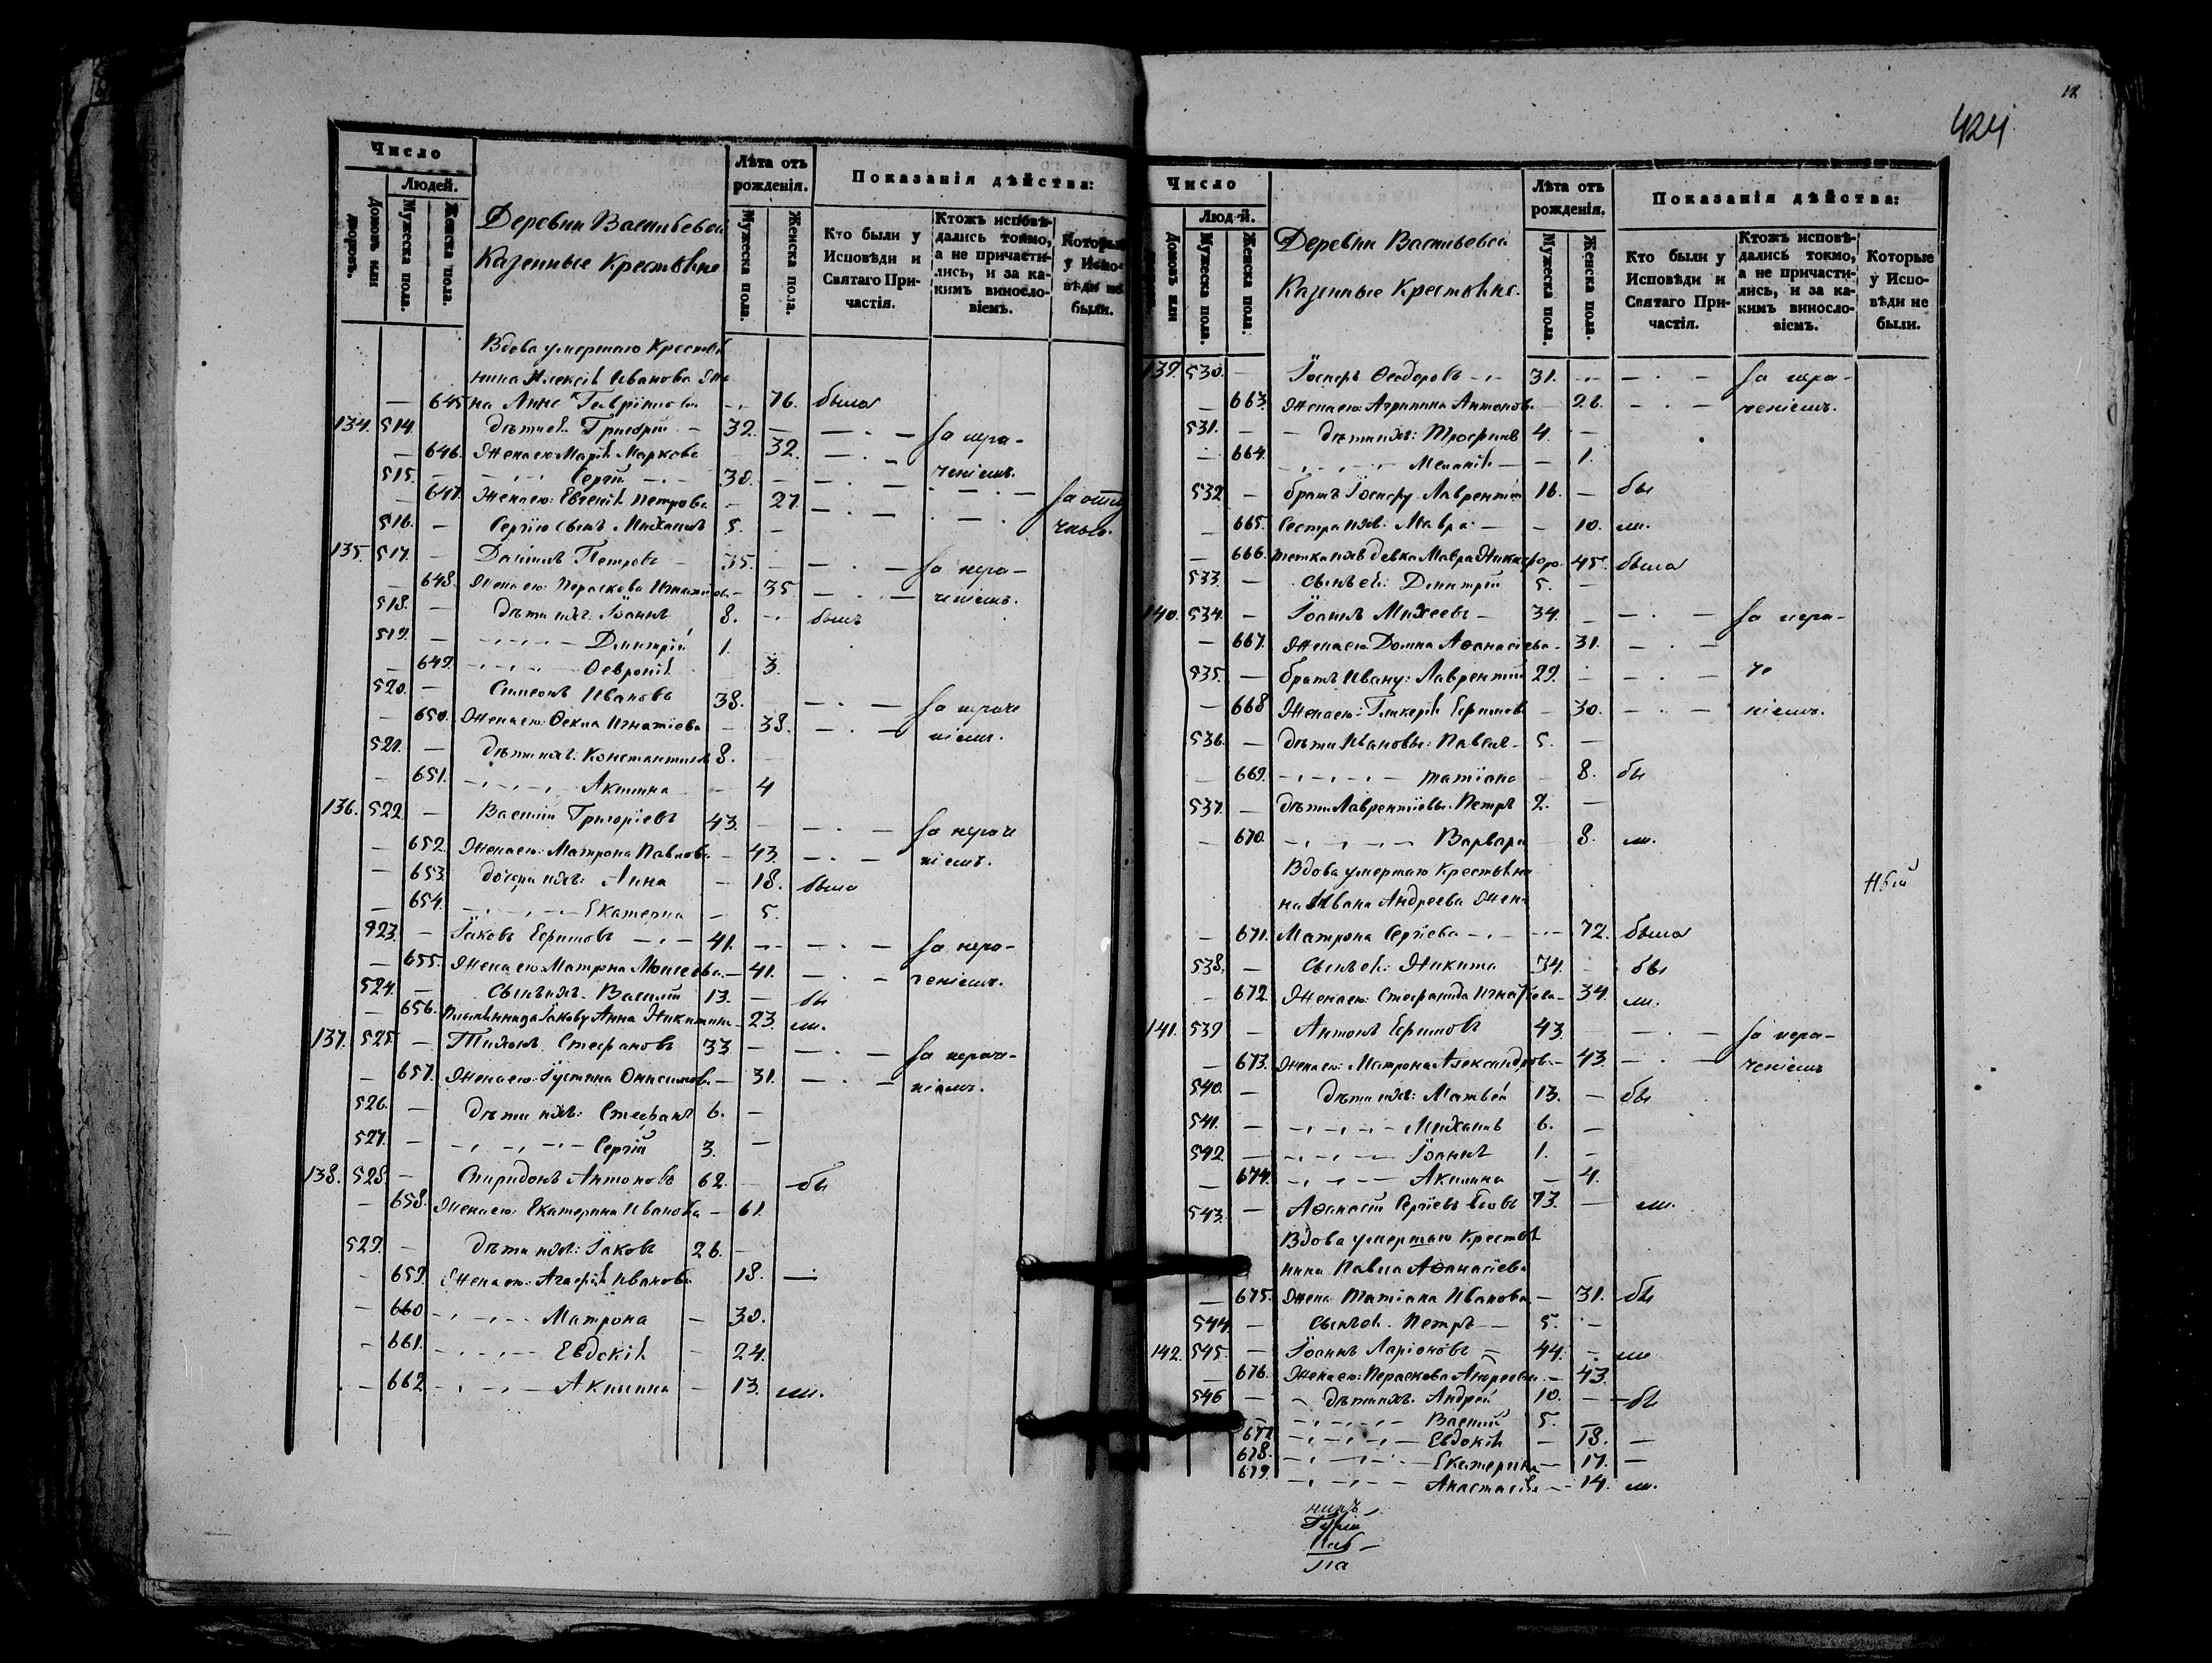 Число
Людей.
Домовъ или дворовъ.
Мужеска пола.
Женска пола.
Деревни Васильевой
Казенные Крестьяне
Лѣта отъ рожденія.
Мужеска пола.
Женска пола.
Показанія дѣйства:
Кто были у Исповѣди и Святаго Причастія.
Ктожъ исповѣдались токмо, а не причастились, и за какимъ винословіемъ.
Которые у Исповѣди не были.
Вдова умершаго Крестья
нина Алексѣя Иванова Же
— 645 на Анна Гаврiилова — 76. была
134. 514. дѣти ея: Григорій — 32. — — . — За нера-
— 646. Жена его Марія Маркова 32. — . — ченіемъ.
515. — Сергій — 30. — — . —
— 647. Жена его: Евгенія Петрова — 27. — . — За отлу
516. — Сергію сынъ Михаилъ 5. — чкою.
135. 517. — Даніилъ Петровъ — 35. — — . — За нера-
— 648. Жена его: Параскева Игнатіева — 35 — . — ченіемъ.
518. — дѣти ихъ: Іоаннъ 8. — былъ
519. — Димитрій 1.
— 649. Февронія 3.
520. — Симеонъ Ивановъ 38. — . — За нераче
— 650. Жена его: Фекла Игнатіева — 38. — . — ніемъ.
521. — дѣти ихъ: Константинъ 8. —
— 651. Акилина — 4
136. 522. — Василій Григоріевъ 43. — — . — За нераче
— 652. Жена его: Матрона Павлова — 43. — . — ніемъ.
— 653. дочери ихъ: Анна — 18. была
— 654. Екатерина — 5.
523. — Іаковъ Ефимовъ — 41. — — . — За нера-
— 655. Жена его Матрона Моисеева — 41. — . — ченіемъ.
524. — Сынъ ихъ. Василій 13. — бы
— 656. Племянница Іакову Анна Никитина — 23. ли.
137. 525. — Тихонъ Стефановъ 33 — — . — За нераче-
— 657. Жена его: Іустина Онисимова — 31. — . — ніемъ.
526. — дѣти ихъ: Стефанъ 6. —
527. — Сергій 3. —
138. 528. — Спиридонъ Антоновъ 62. — бы
— 658. Жена его: Екатерина Иванова — 61.
529. — дѣти ихъ: Іаковъ 26. —
— 659. Жена его: Агафія Иванова 18. —
— 660 Матрона — 30.
— 661. Евдокія — 24.
— 662 Акилина — 13. ли.
12
424
Число
Людей.
Домовъ или
Мужеска пола.
Женска пола.
Деревни Васильевой
Казенные Крестьяне.
Лѣта отъ рожденія.
Мужеска пола.
Женска пола.
Показанія дѣйства:
Кто были у Исповѣди и Святаго Причастія.
Ктожъ исповѣдались токмо, а не причастились, и за какимъ винословіемъ.
Которые у Исповѣди не были.
139. 530. — Іосифъ Феодоровъ — 31. — — . — За нера-
— 663. Жена его: Агрипина Антонов. — 26. — . — ченіемъ.
531. — дѣти ихъ: Трофимъ 4. —
664. Меланія — 1.
532 — братъ Іосифу Лаврентій 16. — бы
— 665. Сестра ихъ: Мавра — 10. ли.
— 666. тетка ихъ девка Мавра Никифоро- 45. была
533 — сынъ ея: Димитрій 5. —
140. 534. — Іоаннъ Михеевъ — 34. — — . — За нера-
— 667. Жена его Домна Афанасіева — 31. — . —
535. — братъ Ивану: Лаврентій 29. — — . — че
— 668 Жена его: Гликерія Ефимова — 30. — . — ніемъ.
536. — дѣти Ивановы: Павелъ — 5. —
— 669. Татіана — 8. бы
537. — дѣти Лаврентіевы: Петръ 2. —
— 670. Варвара — 8. ли.
Вдова умершаго Крестьяни
на Ивана Андреева Жена
— 671. Матрона Сергіева — 72. была
538. — Сынъ ея: Никита 34. — бы
— 672. Жена его: Стефанида Игнатіева — 34. ли.
141. 539 — Антонъ Ефимовъ 43 — — . — За нера-
— 673. Жена его: Матрона Александрова — 43. — . — ченіемъ
540. — дѣти ихъ: Матвѣй 13. — бы
541. — Михаилъ 6. —
542. — Іоаннъ 1. —
— 674. Акилина — 4.
543. — Афанасій Сергіевъ вдовъ 73. — ли.
Вдова умершаго Крестья
нина Павла Афанасіева
— 675. Жена Татіана Иванова — 31. бы
544. — Сынъ ея. Петръ — 5. —
142. 545. — Іоаннъ Ларіоновъ — 44. — ли
— 676. Жена его: Параскева Андреева — 43.
546 — дѣти ихъ. Андрей 10. — бы
Василій 5. —
677 Евдокія — 18. —
678. Екатерина — 17. —
679. Анастасія — 14. ли.